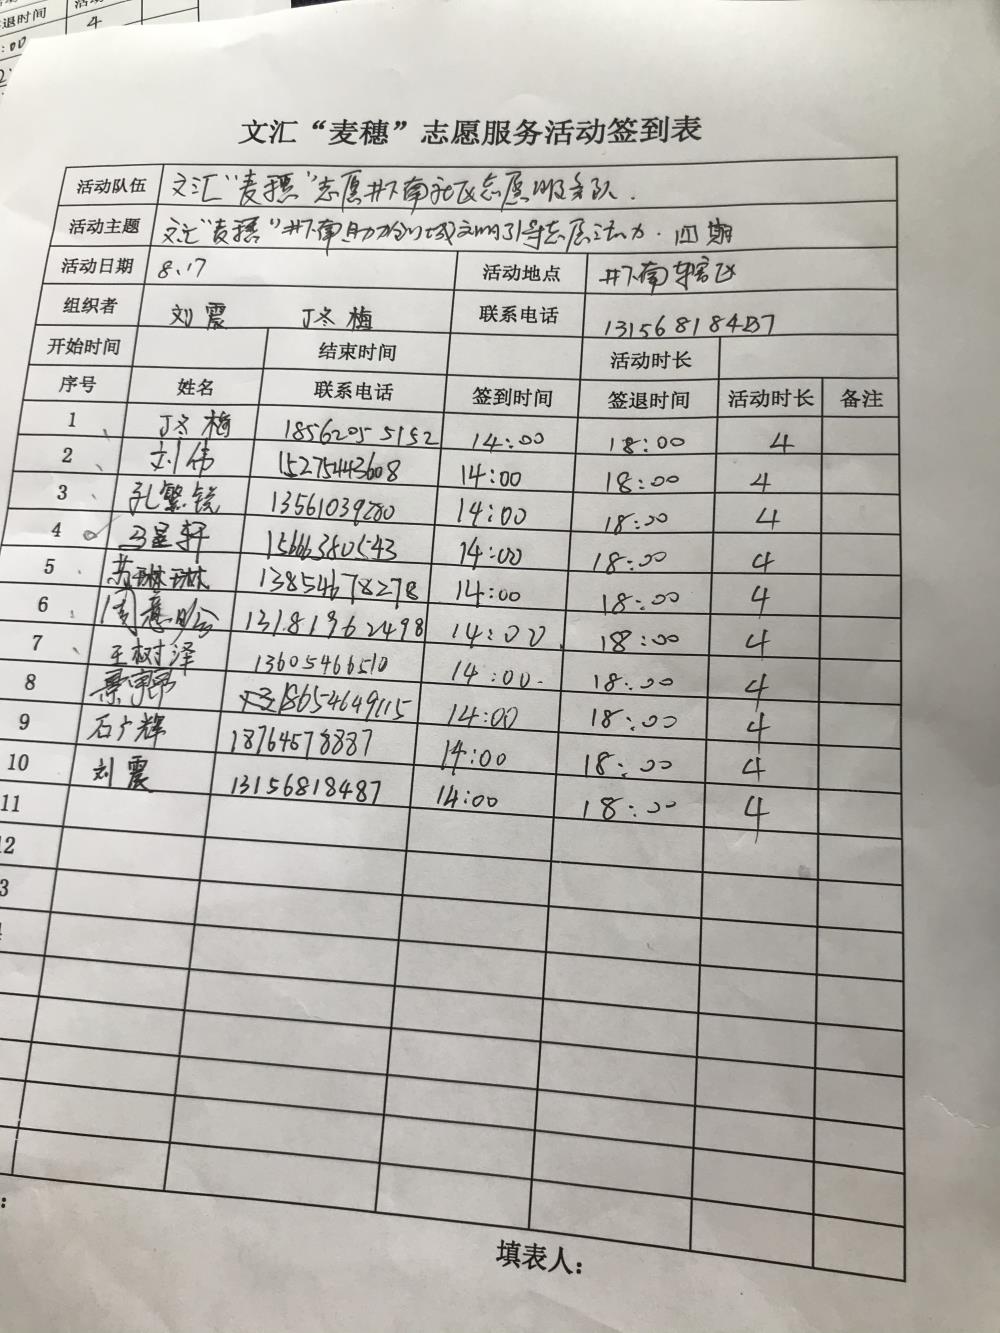 退时间 活动
:00 4
文汇“麦穗”志愿服务活动签到表
活动队伍 文汇“麦穗”志愿井下南社区志愿服务队.
活动主题 文汇“麦穗”井下南助力创城文明引导志愿活力.四期
活动日期 8.17 活动地点 井下南辖区
组织者 刘震 丁冬梅 联系电话 13156818487
开始时间 结束时间 活动时长
序号 姓名 联系电话 签到时间 签退时间 活动时长 备注
1 丁冬梅 18562055152 14:00 18:00 4
2 刘伟 15275443608 14:00 18:00 4
3 孔繁锐 13561039280 14:00 18:00 4
4 马星轩 15666380543 14:00 18:00 4
5 苏琳琳 13854678278 14:00 18:00 4
6 周意 13181962498 14:00 18:00 4
7 王树泽 13605466510 14:00. 18:00 4
8 18654649115 14:00 18:00 4
9 石广辉 18764578887 14:00 18:00 4
10 刘震 13156818487 14:00 18:00 4
11
12
3
填表人：